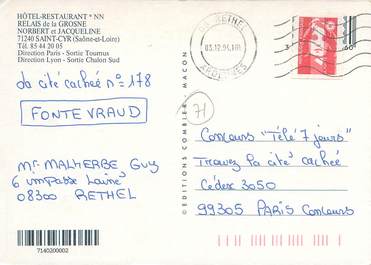 HÔTEL-RESTAURANT * NN
RELAIS de la GROSNE
NORBERT et JACQUELINE
71240 SAINT-CYR (Saône-et-Loire)
Tél. 85 44 20 05
Direction Paris - Sortie Tournus
Direction Lyon - Sortie Chalon Sud
la cité cachée n° 178
FONTEVRAUD
Mr MALHERBE Guy
6 impasse Lainé
08300 RETHEL
7140200002
EDITIONS COMBIER - MACON
03.12.94
ARDENNES
71
Concours "Télé 7 jours"
Trouvez la cité cachée
Cédex 3050
99305 PARIS Concours